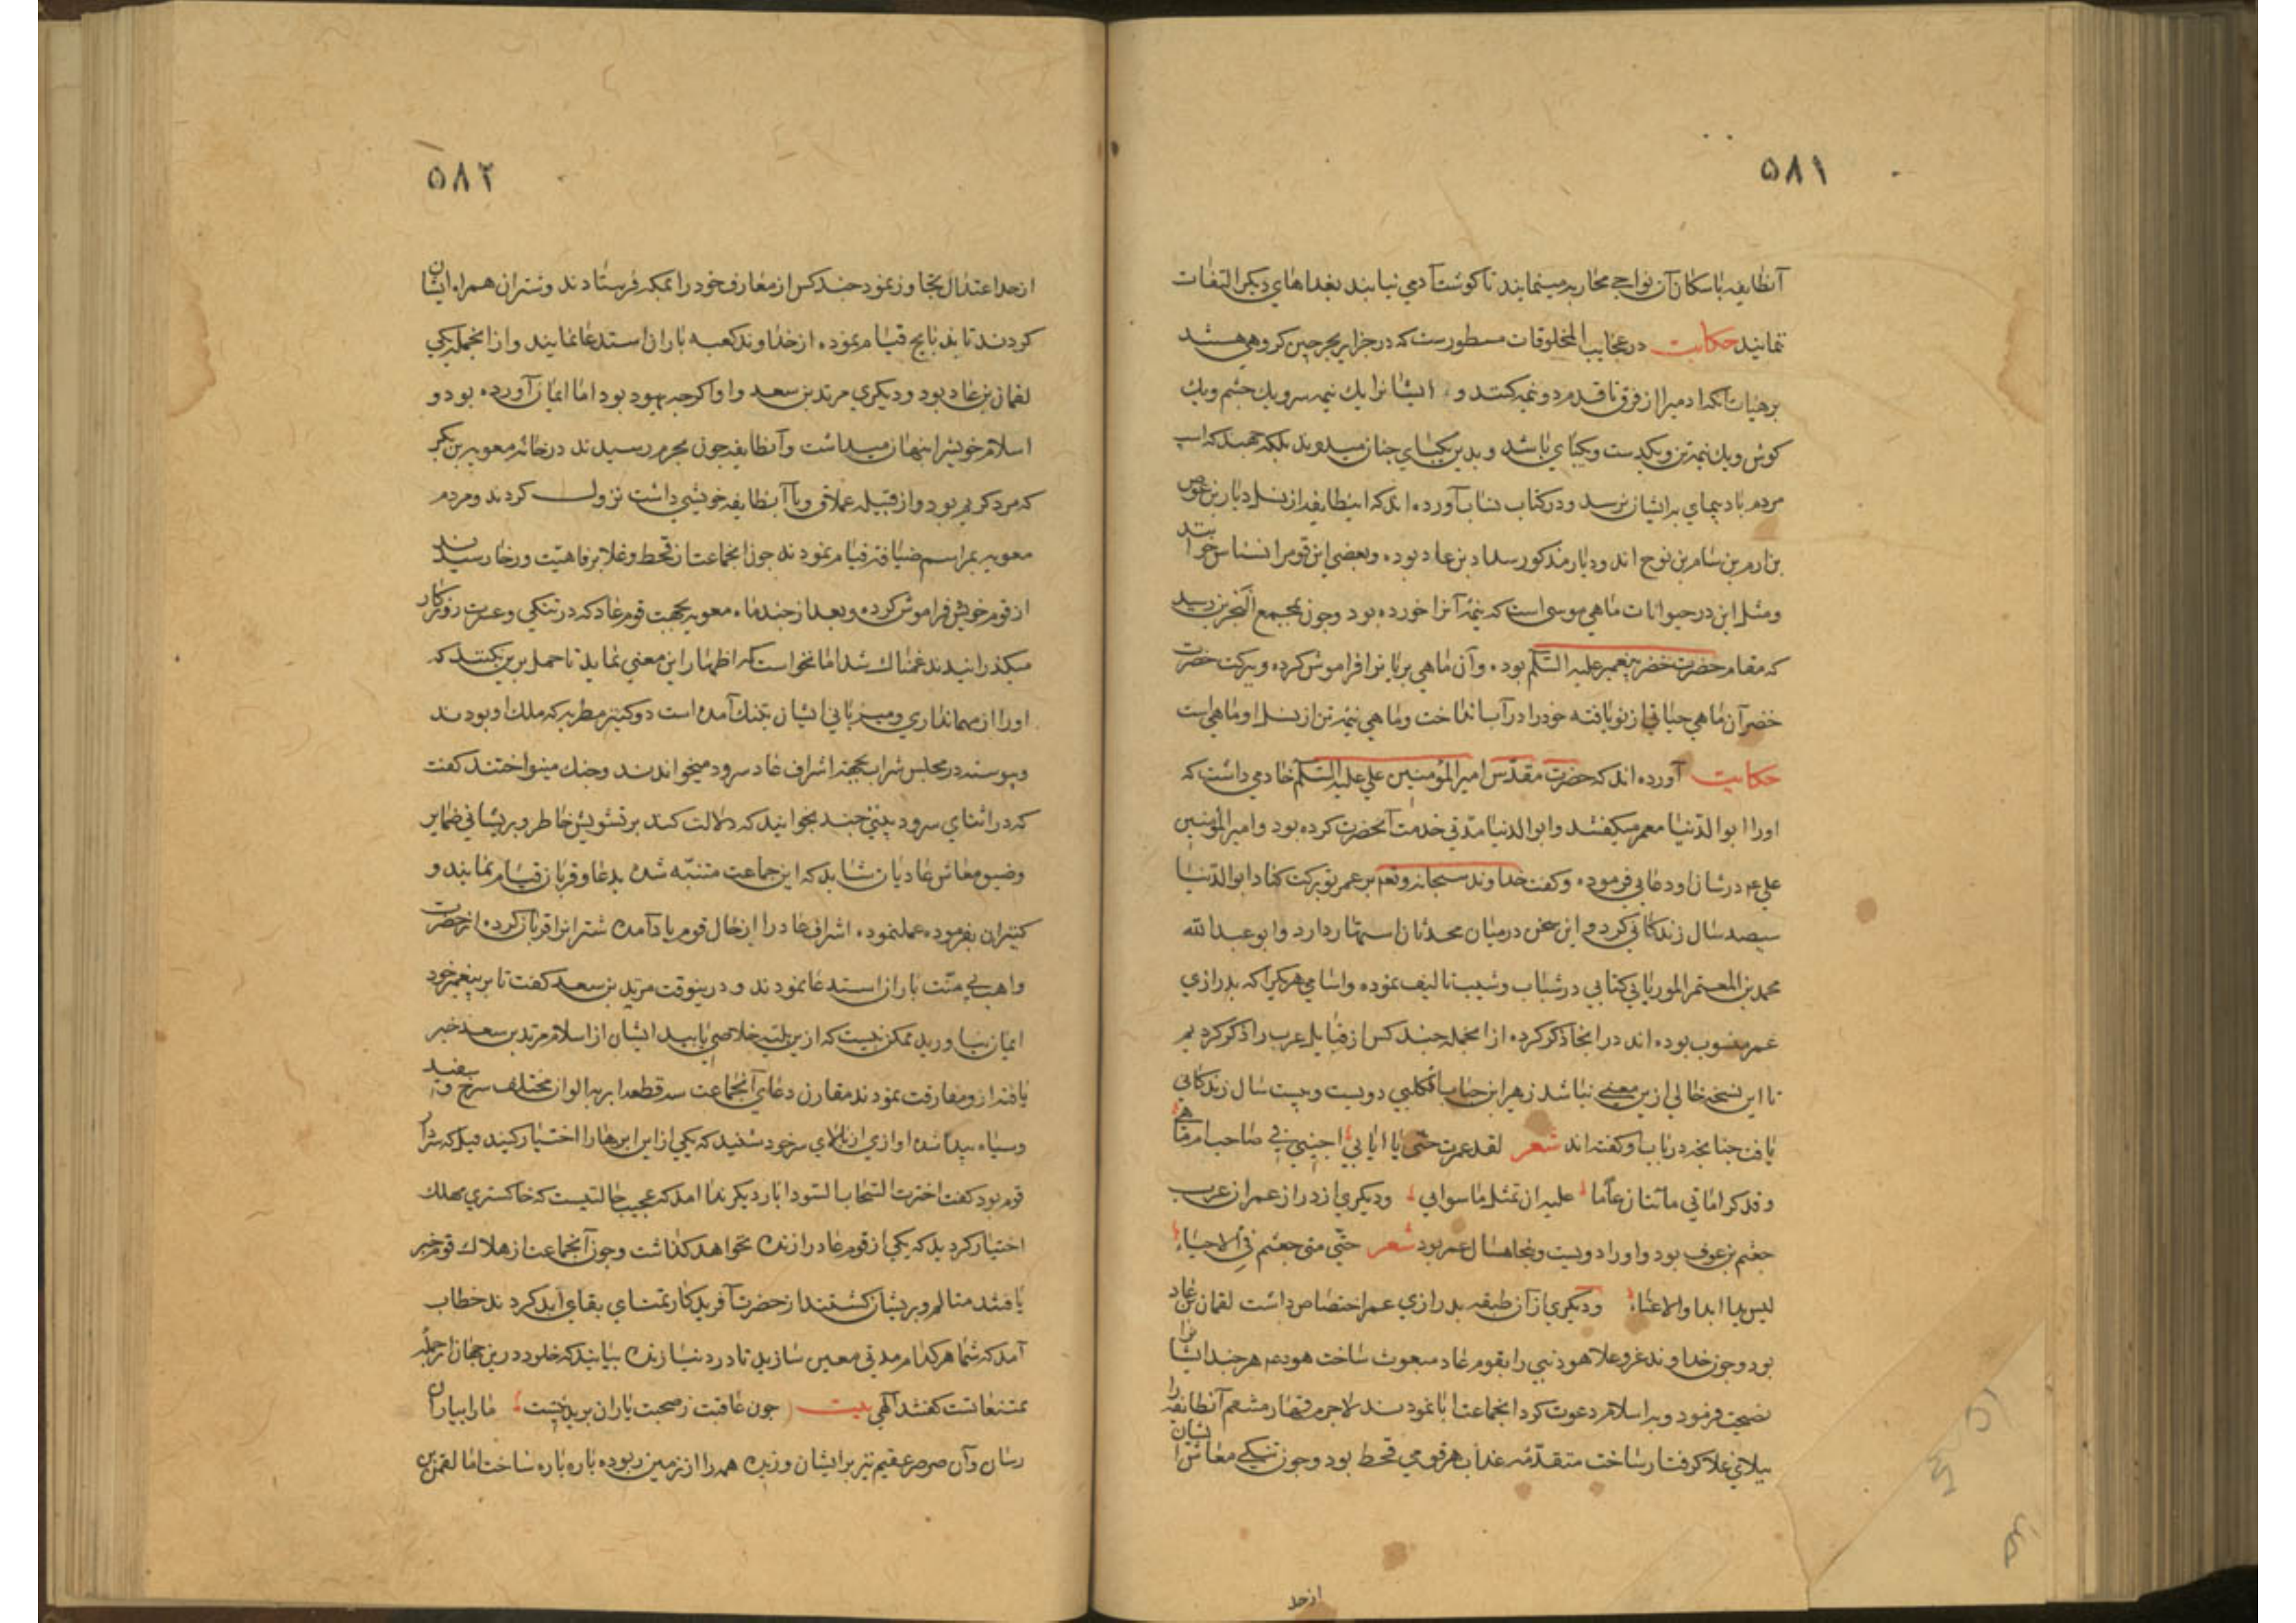 ۵۸۱
آنطایفه باسکان آن نواحی محاربه مینمایند تا کوشت آدمی نیابند بغذاهای دیکر التفات
ننمایند حکایت در عجایب المخلوقات مسطورست که در جزایر بحر چین کروهی هستند
بر هیات آنکه ادمیرا از فرق تا قدم دو نیمه کنند و ایشانرا یك نیمه سر و یك چشم و یك
کوش و یك نیمه تن و یکدست و یکپای باشد و بدین یکپای چنان میدوید بلکه میجهد که اسپ
مردم بادپیمای بدایشان نرسد و در کتاب نساب آورده اند که اینطایفه از نسل دیار بن عوص
بن ارم بن سام بن نوح اند و دیار مذکور بن عاد بوده و بعضی این قومرا نسناس خوانند
و مثل این در حیوانات ماهی موسی است که نیمه آنرا خورده بود و چون بمجمع البحرین رسید
که مقام حضرت خضر پیغمبر علیه السّلم بوده و آن ماهی بریانرا فراموش کرده و ببرکت حضرت
خضر آن ماهی حیاتی از نو یافته خودرا در آب انداخت و ماهی نیمه تن از نسل او ماهی است
حکایت آورده اند که حضرت مقدّس امیر المؤمنین علی علیه السّلم خادمی داشت که
اورا ابو الدّنیا معمر میکفتند و ابو الدنیا مدّتی خدمت آنحضرت کرده بود و امیر المؤمنین
علی ع در شان او دعایی فرموده و کفت خداوند سبحانه و تعم بر عمر تو برکت کناد ابو الدّنیا
سیصد سال زندکانی کرد و این سخن در میان محدثان اشتهار دارد و ابو عبد الله
محمد بن المعتمر الموریانی کتابی در شباب و شیب تالیف نموده و اسامی هرکیرا که بدرازی
عمر منسوب بوده اند در انجا ذکر کرده از انجمله چند کس از قبایل عرب را ذکر کردیم
تا این نسخه خالی ازین معنی نباشد زهیر ابن جناب کلبی دویست و بیست سال زندکانی
یافت چنانچه در باب او کفته اند شعر لقد عمرت حتّی یا ابالی اجنبی فی صاحب ام
و قد کرا ماتی مأتتان عاما علیه ان تمثل ما سوابی و دیکری از دراز عمران عرب
جعثم بن عوف بود و اورا دویست و پنجاه سال عمر بود شعر حتّی متی جعثم فی الاحیاء
لیس بدا ابدا و لا عناء و دیکری از آن طبقه بدرازی عمر اختصاص داشت لقمان بن عاد
بود و چون خداوند عز و علا هود نبی را بقوم عاد مبعوث ساخت هود ع هر چند ایشانرا
نصیحت فرمود و بر اسلام دعوت کرد انجماعت ابا نمودند لاجرم قهار منتقم آنطایفه را
ببلای غلا کرفتار ساخت متقدّمه عذاب هر قومی قحط بود و چون تنکی معاش ایشان
از حد
۵۸۲
از حد اعتدال تجاوز نمود چند کس از معارف خودرا بمکه فرستادند و شتران همراه ایشان
کردند تا بذبایح قیام نموده از خداوند کعبه باران استدعا نمایند و از انجمله یکی
لقمان بن عاد بود و دیکری مرتد بن سعد و او اکرچه یهود بود اما ایمان آورده بود و
اسلام خویشرا پنهان میداشت و آنطایفه چون بحرم رسیدند در خانه معویه بن بکر
که مرد کریم بود و از قبیله عملاق و با آنطایفه خویشی داشت نزول کردند و مردم
معویه بمراسم ضیافت قیام نمودند چون انجماعت از قحط و غلا برفاهیّت و رخا رسیدند
از قوم خویش فراموش کرده و بعد از چند ماه معویه بجهت قوم عاد که در تنکی و عسرت روزکار
میکذرانیدند غمناك شد اما نخواست که اظهار این معنی نماید تا حمل برین نکنند که
اورا از مهمانداری و میزبانی ایشان بتنك آمده است دو کنیز مطربه که ملك او بودند
و پیوسته در مجلس شراب بجهة اشراف عاد سرود میخواندند و چنك مینواختند کفت
که در اثنای سرود بیتی چند بخوانید که دلالت کند بر تشویش خاطر و پریشانی ضمایر
و ضیق معاش عادیان شاید که این جماعت متنبّه شده بدعا و قربان قیام نمایند و
کنیزان بفرموده عمل نموده اشراف عاد را از حال قوم یاد آمده شترانرا قربان کرده از حضرت
واهب بی منّت باران استدعا نمودند و درینوقت مرتد بن سعد کفت تا بر پیغمبر خود
ایمان نیاورید ممکن نیست که ازین بلیّه خلاصی یابید ایشان از اسلام مرتد بن سعد خبر
یافته ازو مفارقت نمودند مقارن دعای آنجماعت سه قطعه ابر بر الوان مختلف سرخ و سفید
و سیاه پیدا شده اوازی از بالای سر خود شنید که یکی از این ابرهارا اختیار کنید قیل که سردار
قوم بود کفت اخترت السّحاب السّودا بار دیکر ندا امد که عجیب حالتیست که خاکستری مهلك
اختیار کردید که یکی از قوم عاد را زنده نخواهد کذاشت و چون آنجماعت از هلاك قوم خبر
یافتند متالم و پریشان کشتند از حضرت آفریدکار تمنای بقای ابد کردند خطاب
آمد که شما هر کدام مدتی معین سازید تا در دنیا زنده بیایید که خلود درین جهان از جمله
ممتنعاتست کفتند آلهی بیت چون عاقبت ز صحبت یاران بریدنیست مارا بیاران
رسان و آن صرصر عقیم نیز بر ایشان وزیده همه را از زمین ربوده پاره پاره ساخت اما لقمن بن